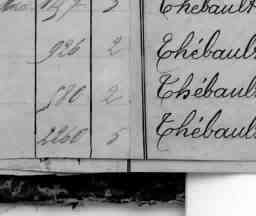 Thébault
926 2 Thébault
580 2 Thébault
2260 5 Thébault